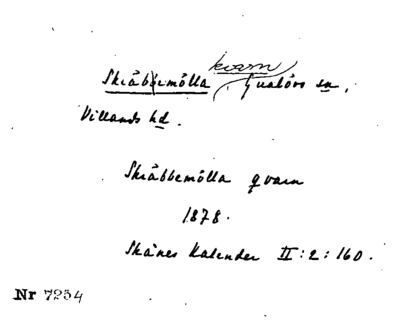 kvarn
Skråbbemölla, Gualövs sn,
Villands hd.
Skråbbemölla qvarn
1878.
Skånes Kalender II:2:160.
Nr 7254